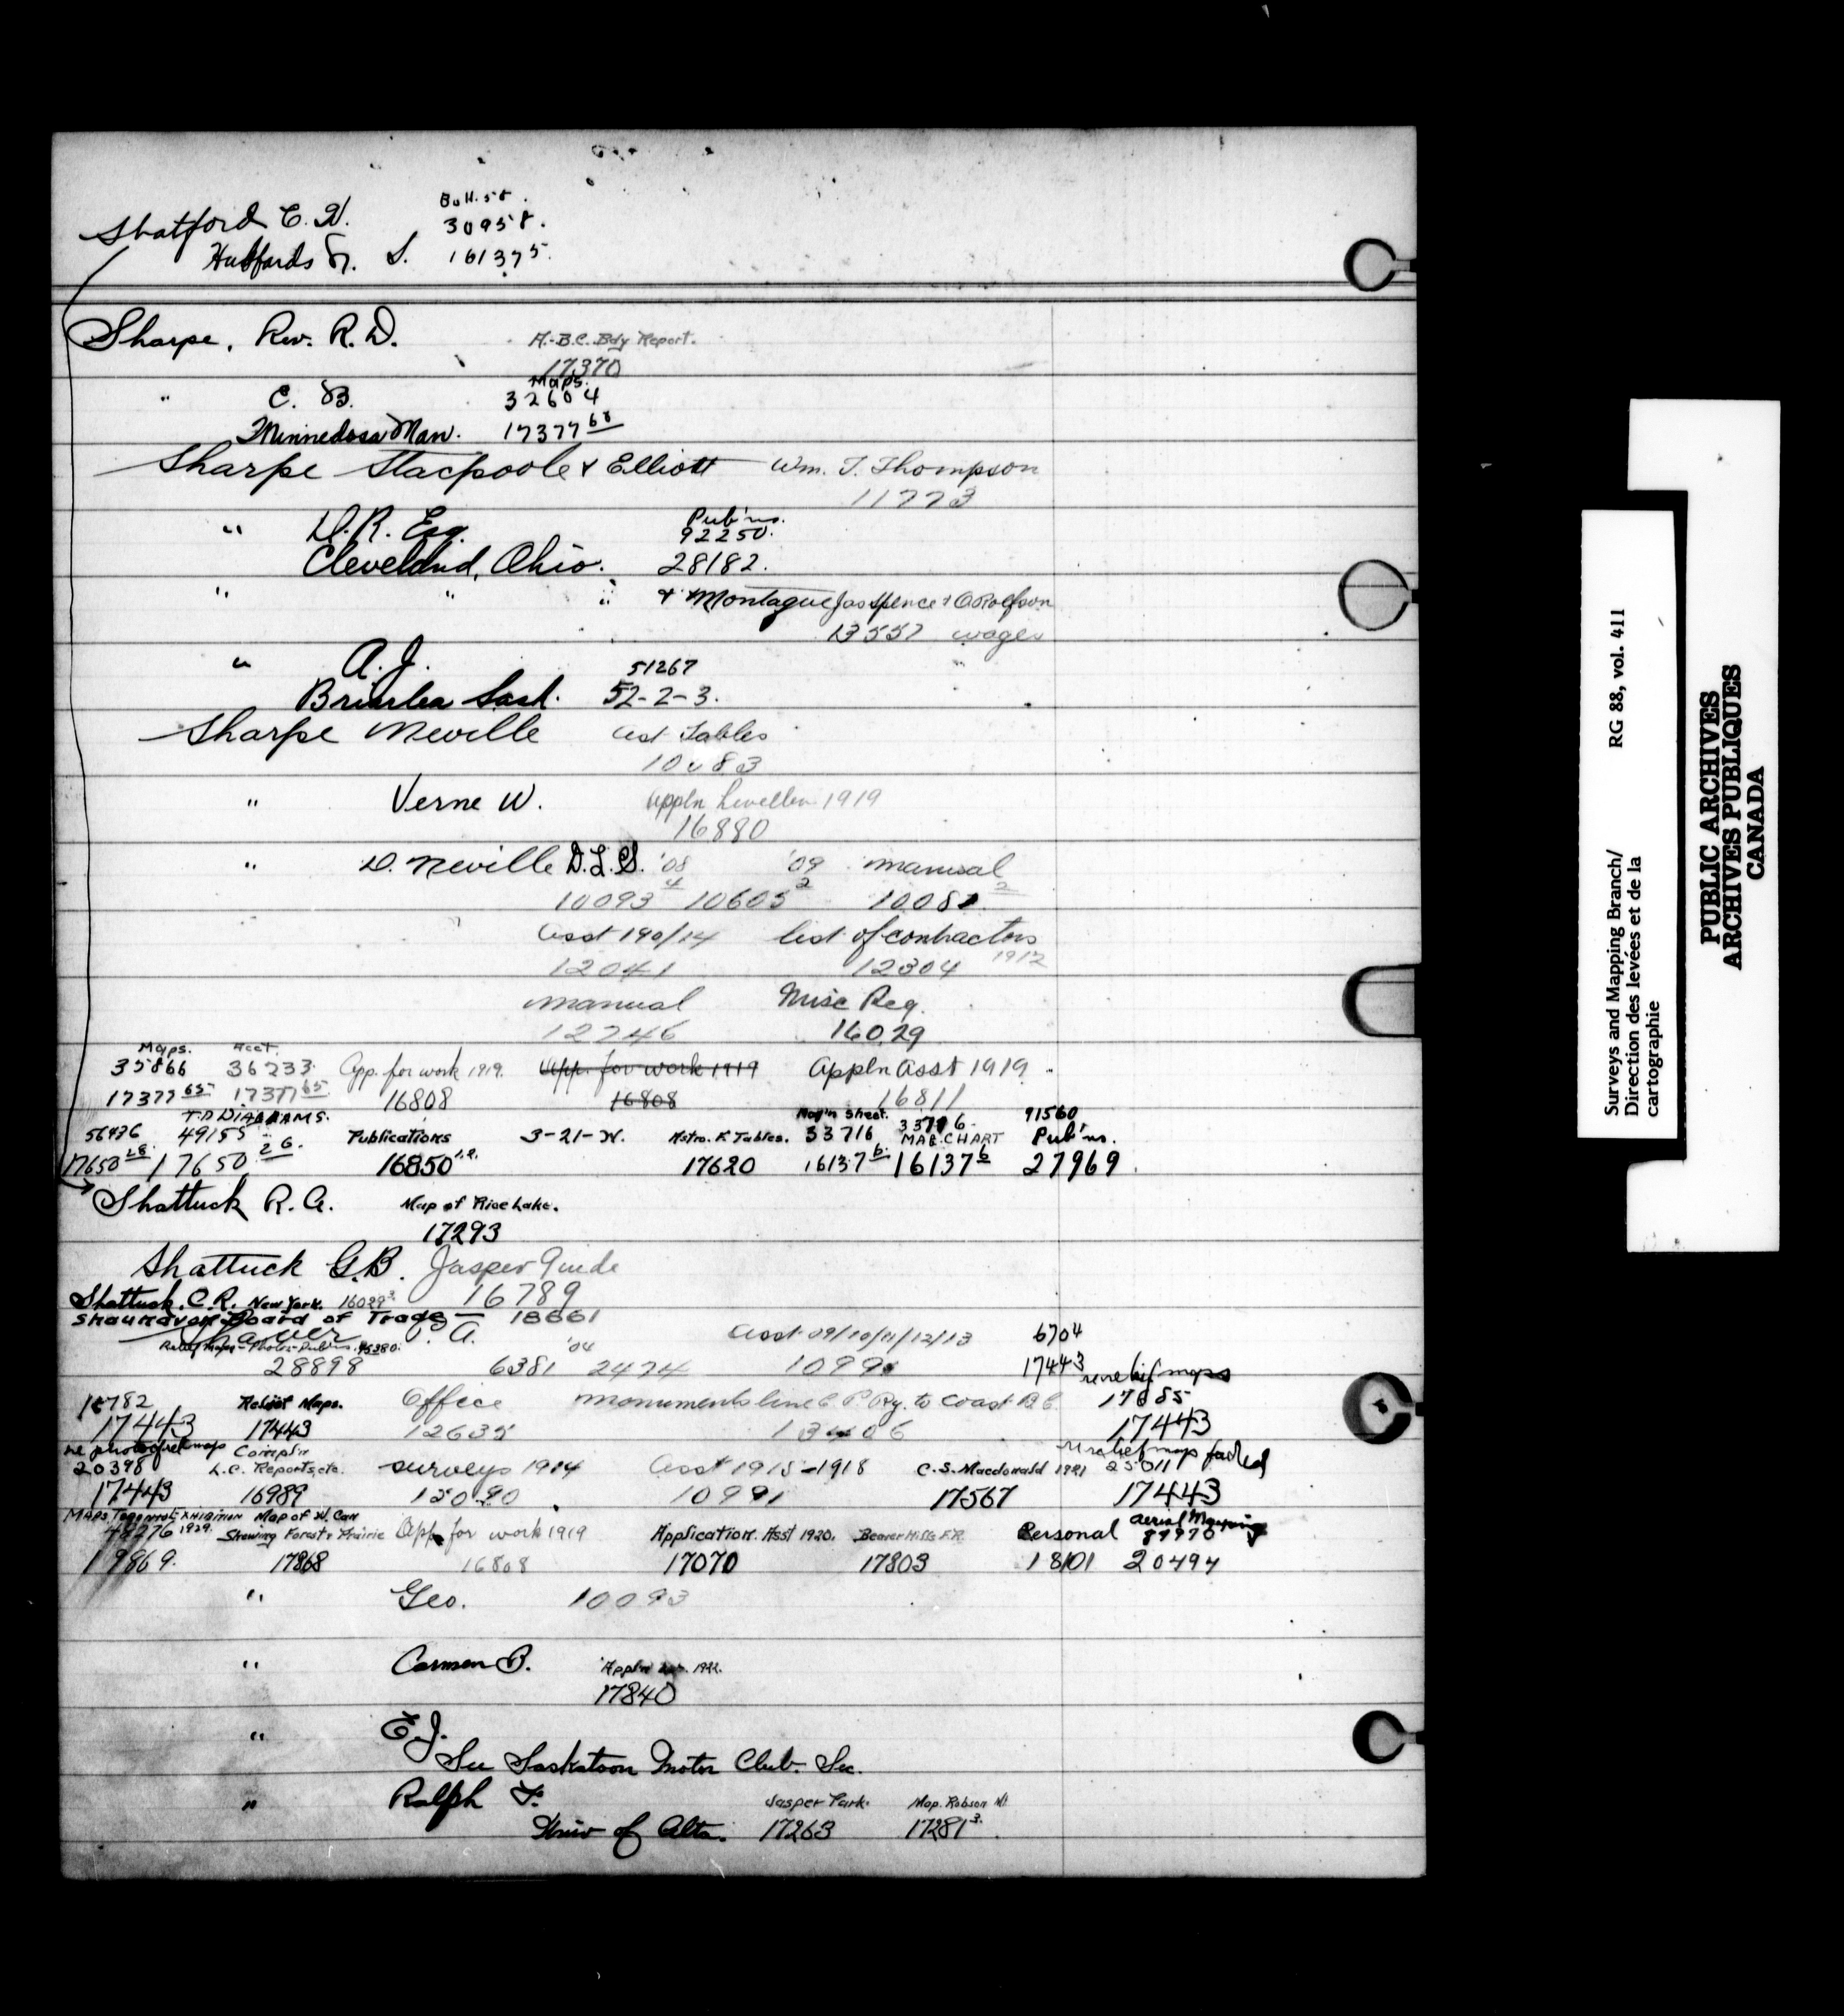 Bull. 58.
Shatford C. W. 30958.
Hubbards N. S. 161375.
Sharpe, Rev. R. D. A.-B.C. Bdy Report.
17370
Maps.
" C. B. 32604
Minnedosa Man. 17377 68
Sharpe Stacpoole & Elliott Wm. T. Thompson
11773
Pub'ns.
" D. R. Esq. 92250.
Cleveland, Ohio. 28182.
" " " & Montague Jas Spence & O Rolfson
13557 wages
" A. J. 51267
Sask. 52-2-3.
Sharpe Neville Ast. Tables
10083
" Verne W. Appln Leveller 1919
16880
" D. Neville D.L.S. '08 '09 manual
10093 4 10605 2 10081 2
Asst 190/14 list of contractors
12041 12304 1912
manual Misc Req.
12746 16029
Maps. Acct.
35866 36233. App. for work 1919. App. for work 1919 Appln Asst 1919
17377 65 17377 65 16808 16808 16811
T.P. DIAGRAMS. Mag'n Sheet. 33716 91560
56436 49155 Publications 3-21-W. Astro. F. Tables. 33716 MAG. CHART Pub'ns.
17650 28 17650 26. 16850 17620 16137 6 16137 6 27969.
Shattuck R. A. Map of Rice Lake.
17293
Shattuck G.B. Jasper Guide
16789
Shattuck, C.R. New York. 16029 3
Shaunavon Board of Trade — 18661
Shaver P. A. Asst 09/10/11/12/13 6704
Relief Maps - Photos - Pub'ns. 45380. '04
28898 6381 2474 10991 17443 re relief maps
Relief Maps. Office monuments line C P Ry. to Coast B.C. 17685
17443 17443 12635 13406 17443
re photo of rel map Compl'n re relief map faded
20398 L.C. Reports, etc. surveys 1914 Asst 1915-1918 C.S. Macdonald 1921 25011
17443 16989 12090 10991 17567 17443
MAPS. TORONTO EXHIBITION Map of W. Can Aerial Mapping
48276 1929. Shewing Forest & Prairie App. for work 1919 Application. Asst 1920. Beaver Hills F.R. Personal 89970
19869. 17868 16808 17070 17803 18101 20494
" Geo. 10093
" Carmen B. Appl'n 1922.
17840
" E. J.
See Saskatoon Motor Club. Sec.
" Ralph F. Jasper Park. Map. Robson Mt.
Univ of Alta. 17263 17281 3.
Surveys and Mapping Branch/ RG 88, vol. 411
Direction des levées et de la
cartographie
PUBLIC ARCHIVES
ARCHIVES PUBLIQUES
CANADA